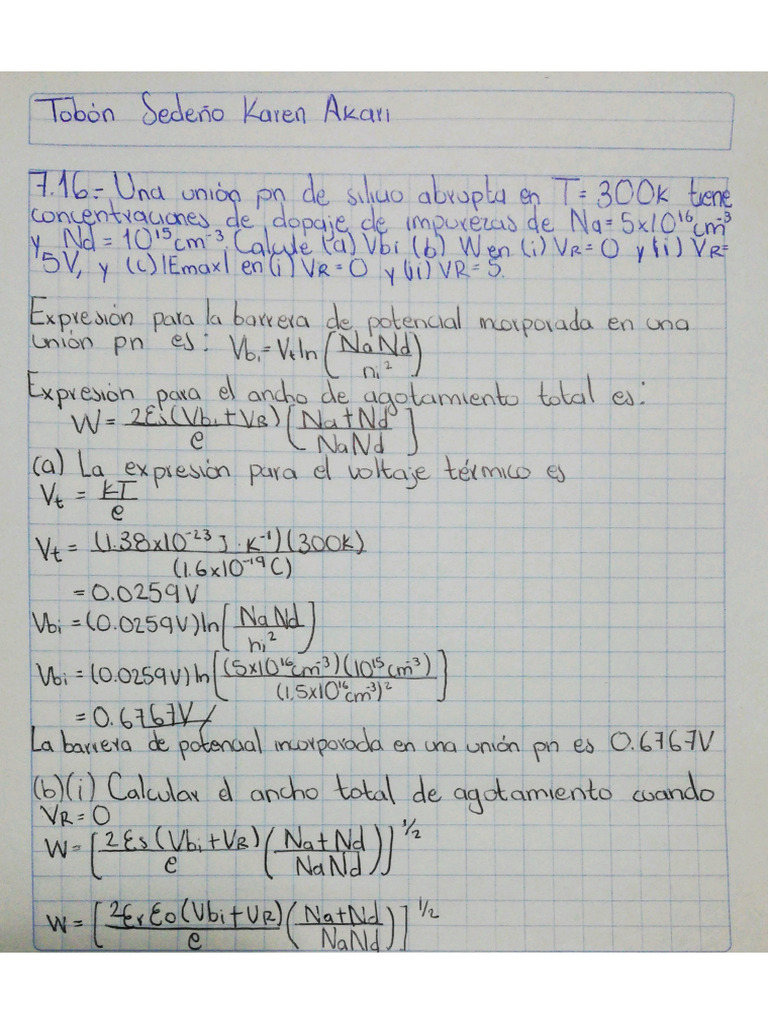 Tobón Sedeño Karen Akari
7.16.- Una unión pn de silicio abrupta en T= 300K tiene
concentraciones de dopaje de impurezas de Na=5x10¹⁶cm⁻³
y Nd = 10¹⁵cm⁻³. Calcule (a) Vbi (b) W en (i) VR=0 y (ii) VR=
5V, y (c) |Emax| en (i) VR=0 y (ii) VR=5.
Expresión para la barrera de potencial incorporada en una
unión pn es: Vbi=Vt ln(NaNd/ni²)
Expresión para el ancho de agotamiento total es:
W= 2Es(Vbi+VR)/e [Na+Nd/NaNd]
(a) La expresión para el voltaje térmico es
Vt = kT/e
Vt = (1.38x10⁻²³J·K⁻¹)(300K)/(1.6x10⁻¹⁹C)
=0.0259V
Vbi=(0.0259V)ln[NaNd/ni²]
Vbi=(0.0259V)ln[(5x10¹⁶cm⁻³)(10¹⁵cm⁻³)/(1.5x10¹⁶cm⁻³)²]
=0.6767V
La barrera de potencial incorporada en una unión pn es 0.6767V
(b)(i) Calcular el ancho total de agotamiento cuando
VR=0
W=[2Es(Vbi+VR)/e (Na+Nd/NaNd)]^1/2
W=[2ErEo(Vbi+VR)/e (Na+Nd/NaNd)]^1/2